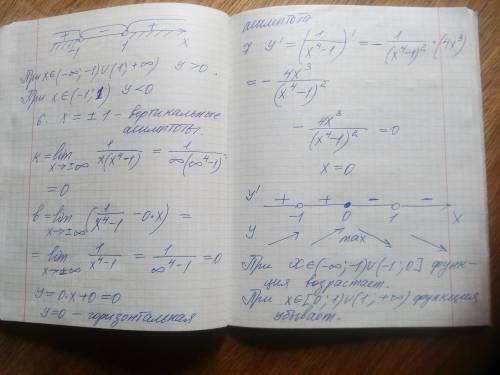 + - +
-1 1 x
При x∈(-∞;-1)∪(1;+∞) y>0.
При x∈(-1;1) y<0
6. x = ±1 - вертикальные
асимптоты
k = lim x→±∞ 1/(x(x⁴-1)) = 1/(∞(∞⁴-1)) =
= 0
b = lim x→±∞ (1/(x⁴-1) - 0·x) =
= lim x→±∞ 1/(x⁴-1) = 1/(∞⁴-1) = 0
y = 0·x + 0 = 0
y=0 - горизонтальная
асимптота
7. y' = (1/(x⁴-1))' = - 1/(x⁴-1)² · (4x³)
= - 4x³/(x⁴-1)²
- 4x³/(x⁴-1)² = 0
x = 0
y' + + - -
-1 0 1 x
y max
При x∈(-∞;-1)∪(-1;0] функ-
ция возрастает.
При x∈[0;1)∪(1;+∞) функция
убывает.